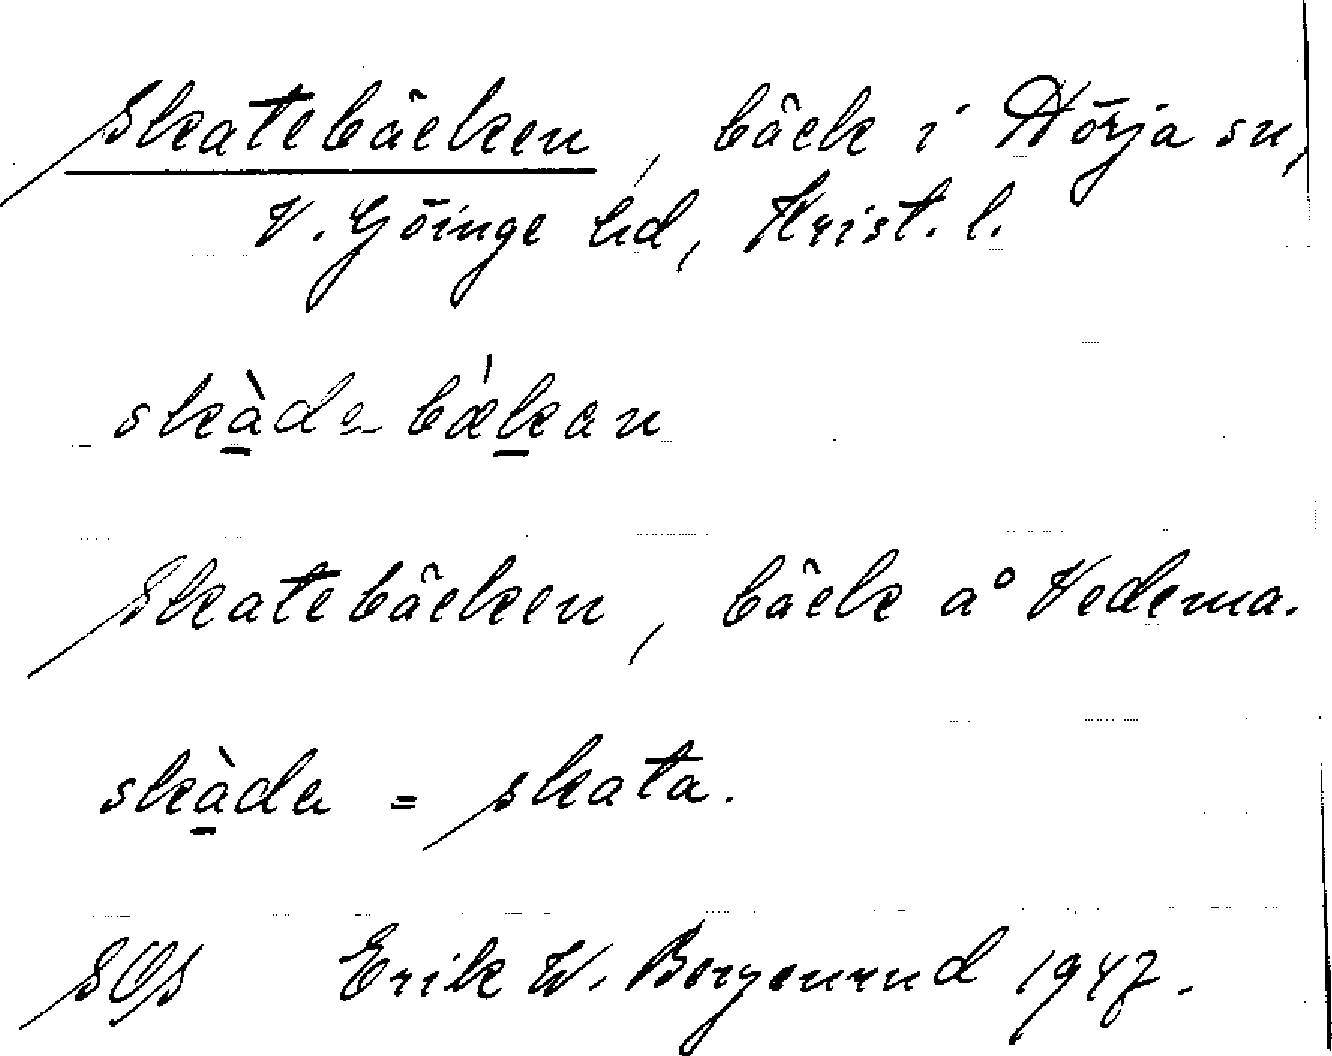 Skatebäcken, bäck i Hörja sn,
V. Göinge hd, Krist. l.
skàdebækan
Skatebäcken, bäck å Vedema.
skàda = skata.
Erik W. Borgenrud 1947.